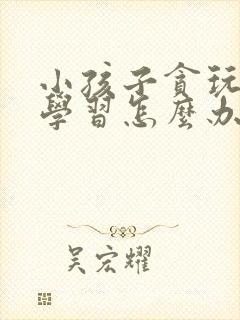 小孩子貪玩
學習怎麼办
吴宏耀